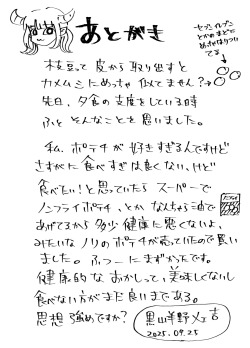 あとがき
セブンイレブン
とかのまどに
めっちゃはりつい
てる
枝豆って皮から取り出すと
カメムシにめっちゃ似てません？→
先日、夕食の支度をしている時
ふと そんなことを思いました。
私、ポテチが好きすぎるんですけど
さすがに食べすぎは良くない、けど
食べたい！と思っていたら スーパーで
ノンフライポテチ、とか なんちゃら油で
あげてるから多少健康に悪くないよ、
みたいな ノリのポテチが売っていたので買い
ました。ふつーにまずかったです。
健康的な おかしって、美味しくないし
食べない方がまだ良いまである。
思想強めですか？
黒山羊野メェ吉
2025.09.25